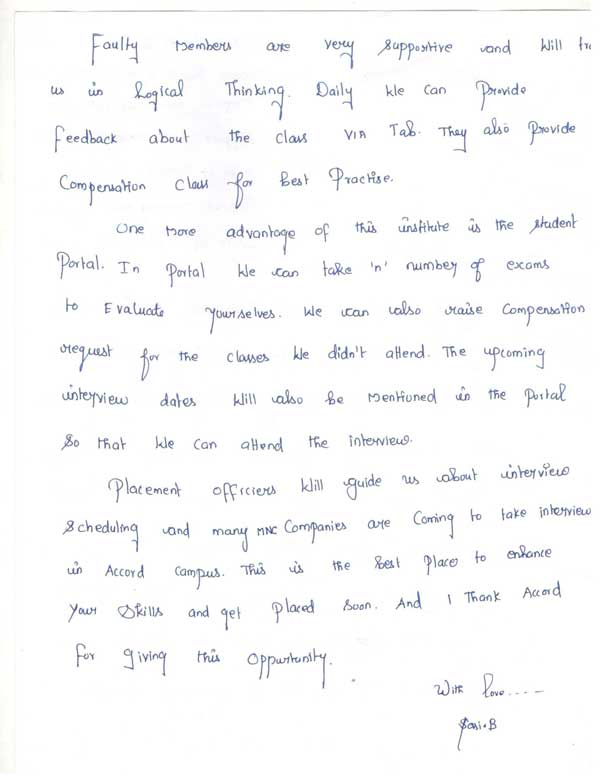 Faulty Members are very supportive and Will tra
us in Logical Thinking. Daily We Can Provide
Feedback about the class VIA Tab. They also Provide
Compensation Class for Best Practise.
One More advantage of this institute is the student
Portal. In Portal We can take 'n' number of exams
to Evaluate yourselves. We can also raise Compensation
request for the classes We didn't attend. The upcoming
interview dates Will also be Mentioned in the Portal
So that We Can attend the interview.
Placement officiers Will guide us about interview
Scheduling and many MNC Companies are Coming to take interview
in Accord Campus. This is the Best Place to enhance
Your Skills and get Placed Soon. And I Thank Accord
For giving this Oppurtunity.
With love....-
Sasi.B